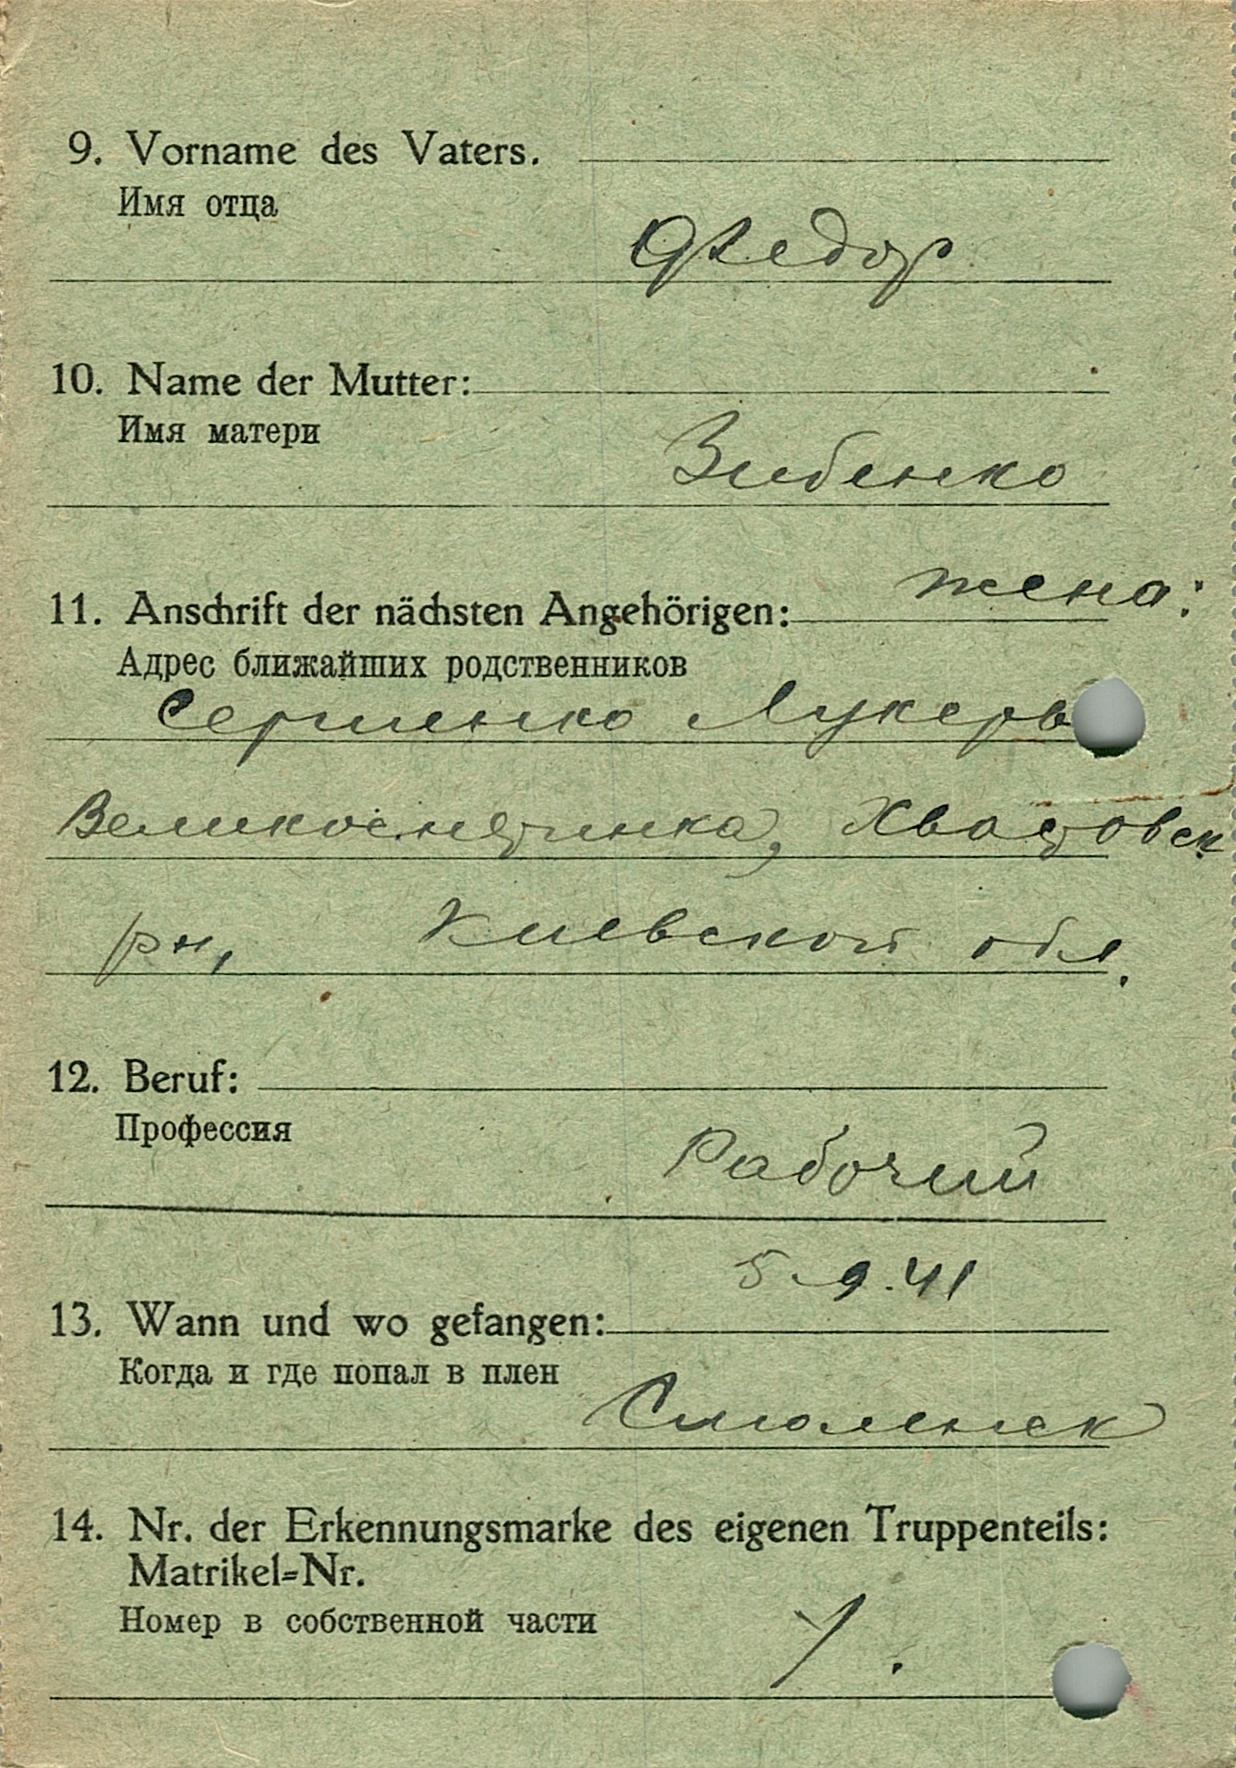 9. Vorname des Vaters.
Имя отца
Федор
10. Name der Mutter:
Имя матери
Зибенко
жена:
11. Anschrift der nächsten Angehörigen:
Адрес ближайших родственников
Лукерь
Хвастовск
рн, Киевской обл.
12. Beruf:
Профессия
Рабочий
5.9.41
13. Wann und wo gefangen:
Когда и где попал в плен
Смоленск
14. Nr. der Erkennungsmarke des eigenen Truppenteils:
Matrikel=Nr.
Номер в собственной части